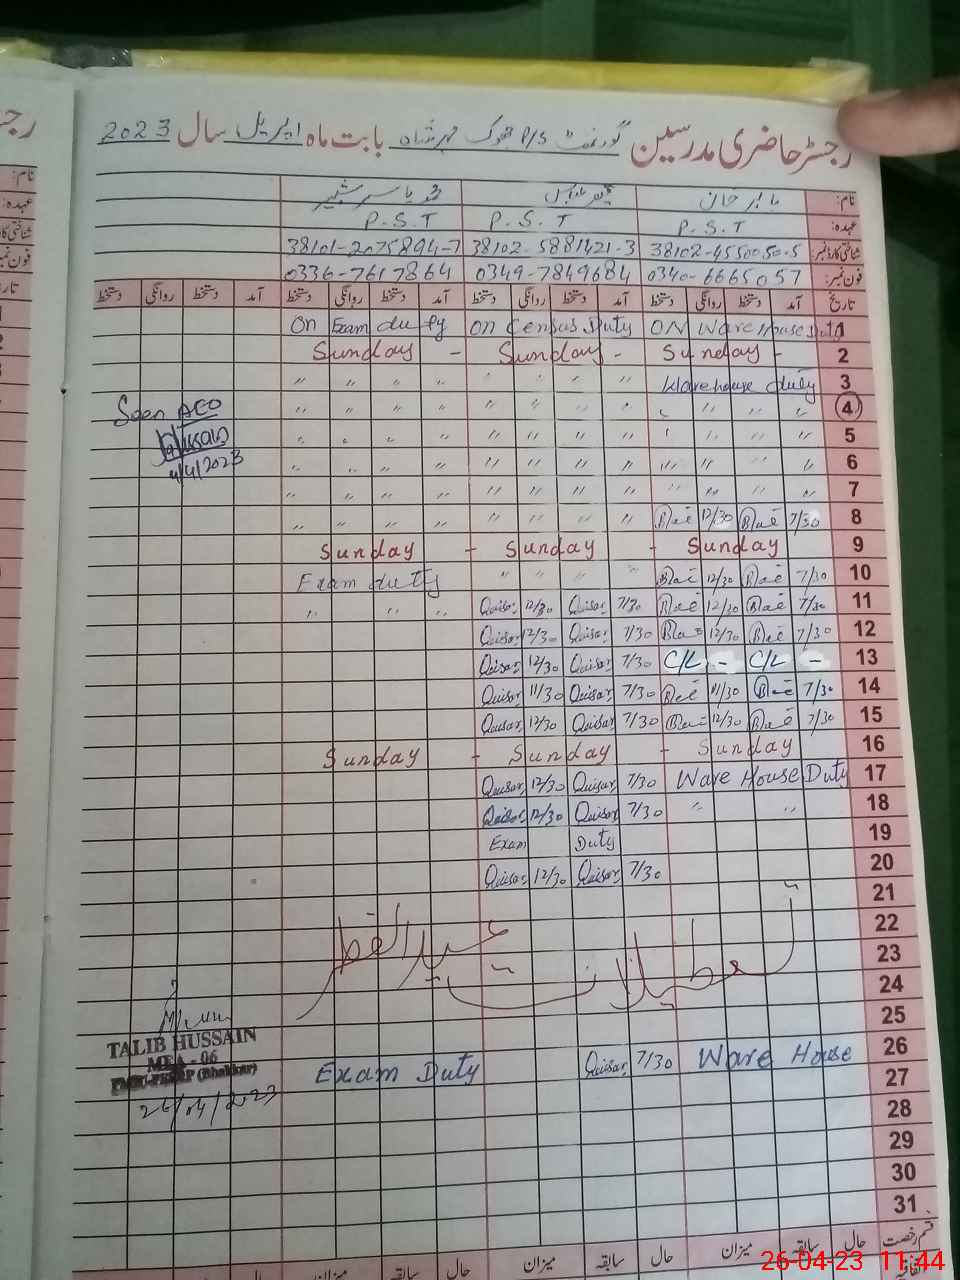 رجسٹر حاضری مدرسین گورنمنٹ P/S جھوک مہر شاہ بابت ماہ اپریل سال 2023
نام: بابر خان محمد یاسر شبیر
عہدہ: P.S.T P.S.T P.S.T
شناختی کارڈ نمبر: 38102-4550050-5 38102-5881421-3 38101-2075894-7
فون نمبر: 0340-6665057 0349-7849684 0336-7617864
تاریخ آمد دستخط روانگی دستخط آمد دستخط روانگی دستخط آمد دستخط روانگی دستخط آمد دستخط روانگی دستخط
On Exam duty On Census Duty ON Ware House Duty 1
Sunday - Sunday - Sunday - 2
" " " " " " " " Warehouse duty 3
Seen AEO " " " " " " " " " " " 4
Hussain " " " " " " " " " " " 5
4/4/2023 " " " " " " " " " " " 6
" " " " " " " " " " " " 7
" " " " " " " " 12/30 7/30 8
Sunday - Sunday - Sunday 9
Exam duty " " " " 12/30 7/30 10
" " " Quisar 12/30 Quisar 7/30 12/30 7/30 11
Quisar 12/30 Quisar 7/30 12/30 7/30 12
Quisar 12/30 Quisar 7/30 C/L - C/L - 13
Quisar 11/30 Quisar 7/30 11/30 7/30 14
Quisar 12/30 Quisar 7/30 12/30 7/30 15
Sunday - Sunday - Sunday 16
Quisar 12/30 Quisar 7/30 Ware House Duty 17
Quisar 12/30 Quisar 7/30 " " 18
Exam Duty 19
Quisar 12/30 Quisar 7/30 20
21
22
تعطیلات عیدالفطر
23
24
25
TALIB HUSSAIN
MEA - 06
(Bhakkar)
26/04/2023
Exam Duty Quisar 7/30 Ware House 26
27
28
29
30
31
قسم رخصت حال سابقہ میزان حال سابقہ میزان حال سابقہ میزان حال
اتفاقیہ
26-04-23 11:44